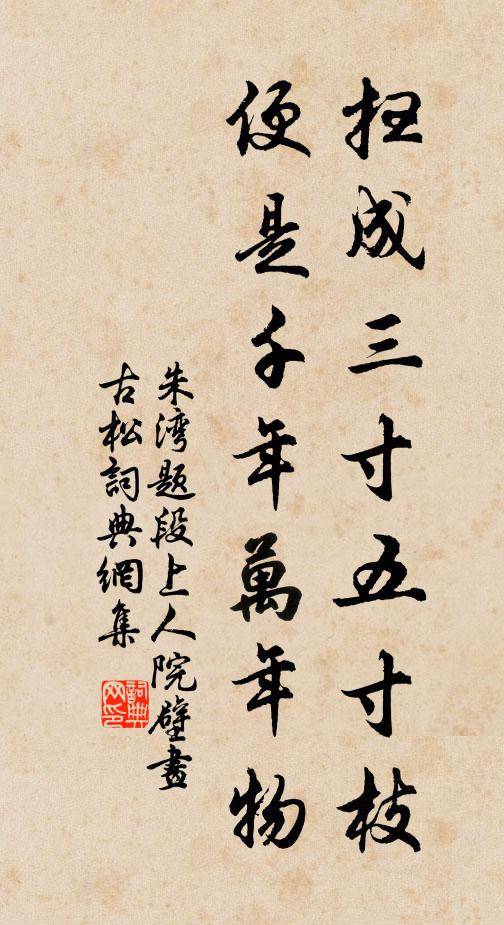 扫成三寸五寸枝
便是千年萬年物
朱湾题段上人院壁畫
古松詞典網集
詞典网印